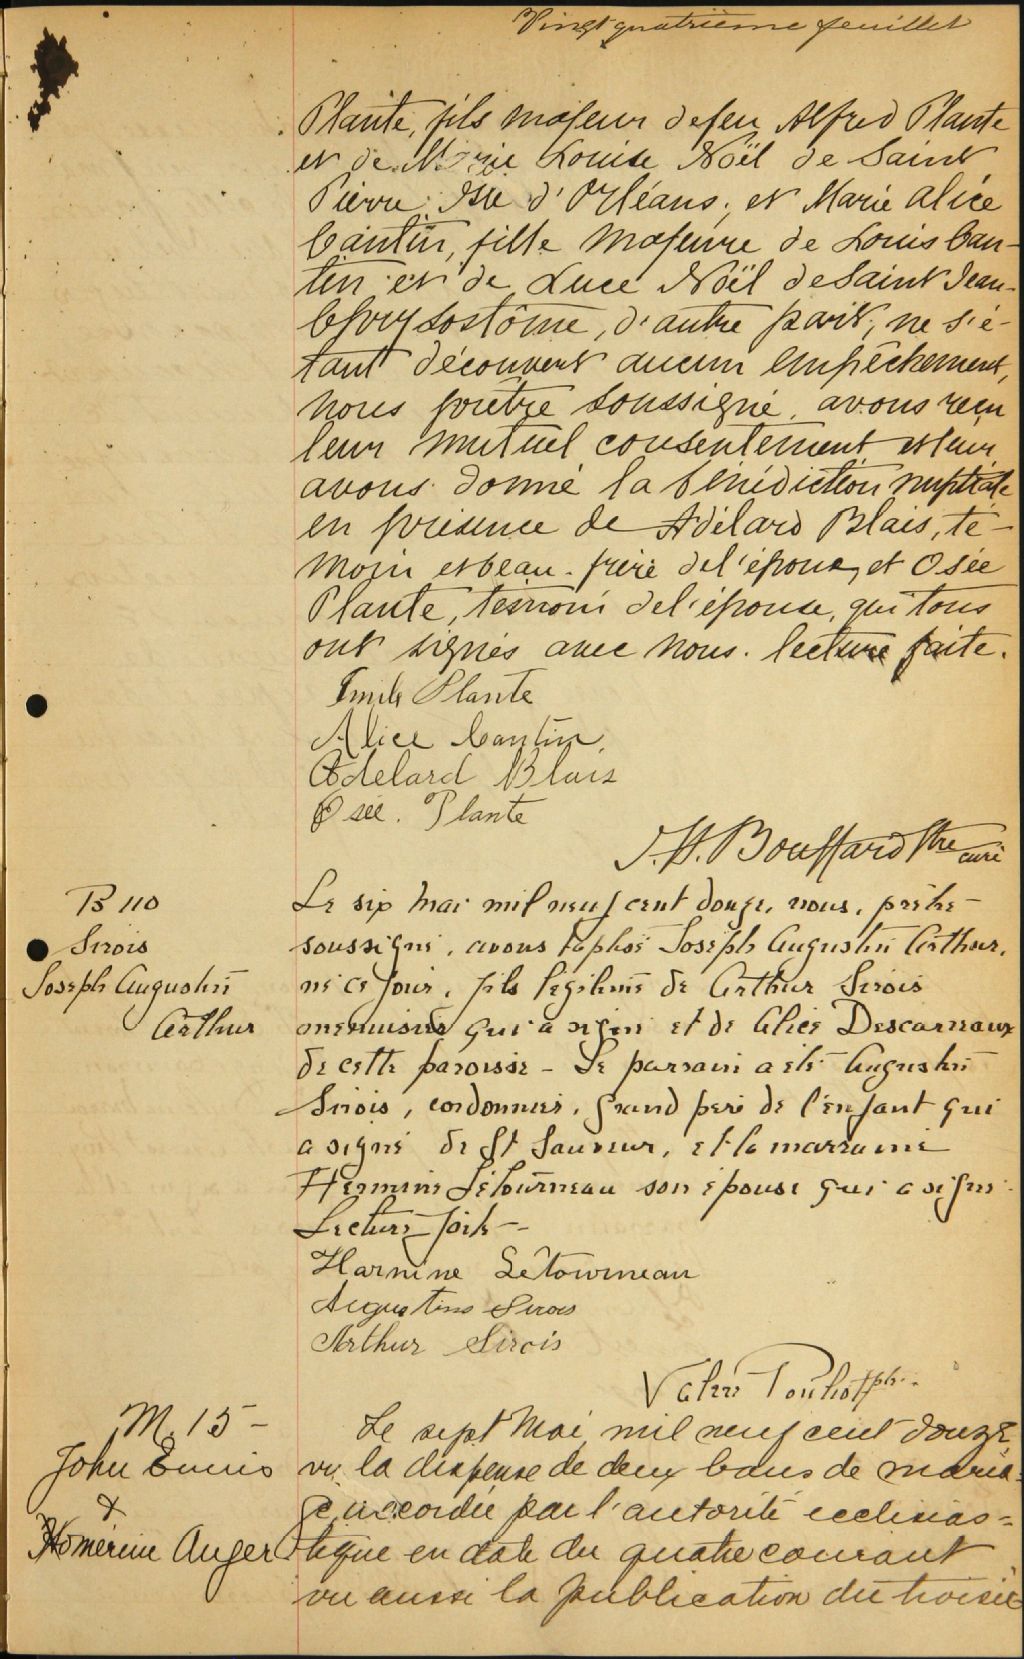 Vingt quatrième feuillet
Plante, fils majeur de feu Alfred Plante
et de Marie Louise Noël de Saint
Pierre Isle d'Orléans, et Marie Alice
Cantin, fille majeure de Louis Can-
tin et de Luce Noël de Saint Jean-
Chrysostôme, d'autre part, ne s'é-
tant découvert aucun empêchement,
nous prêtre soussigné, avons reçu
leur mutuel consentement et leur
avons donné la bénédiction nuptiale
en présence de Adélard Blais, té-
moin et beau-frère de l'époux, et Osée
Plante, témoin de l'épouse, qui tous
ont signés avec nous. lecture faite.
Emile Plante
Alice Cantin
Adelard Blais
Osée. Plante
J. H. Bouffard Ptre curé
B 110
Sirois
Joseph Augustin
Arthur
Le six mai mil neuf cent douze, nous, prêtre
soussigné, avons baptisé Joseph Augustin Arthur,
né ce jour, fils légitime de Arthur Sirois
menuisier qui a signé et de Alice Descarreaux
de cette paroisse - Le parrain a été Augustin
Sirois, cordonnier, grand père de l'enfant qui
a signé de St Sauveur, et la marraine
Hermine Létourneau son épouse qui a signé
Lecture faite -
Harmine Létourneau
Augustins Sirois
Arthur Sirois
Valère Pouliot ptr.
M. 15 -
John Ennis
&
Homérine Auger
Le sept Mai mil neuf cent douze
vu la dispense de deux bans de maria=
ge accordée par l'autorité ecclésias=
tique en date du quatre courant
vu aussi la publication du troisiè